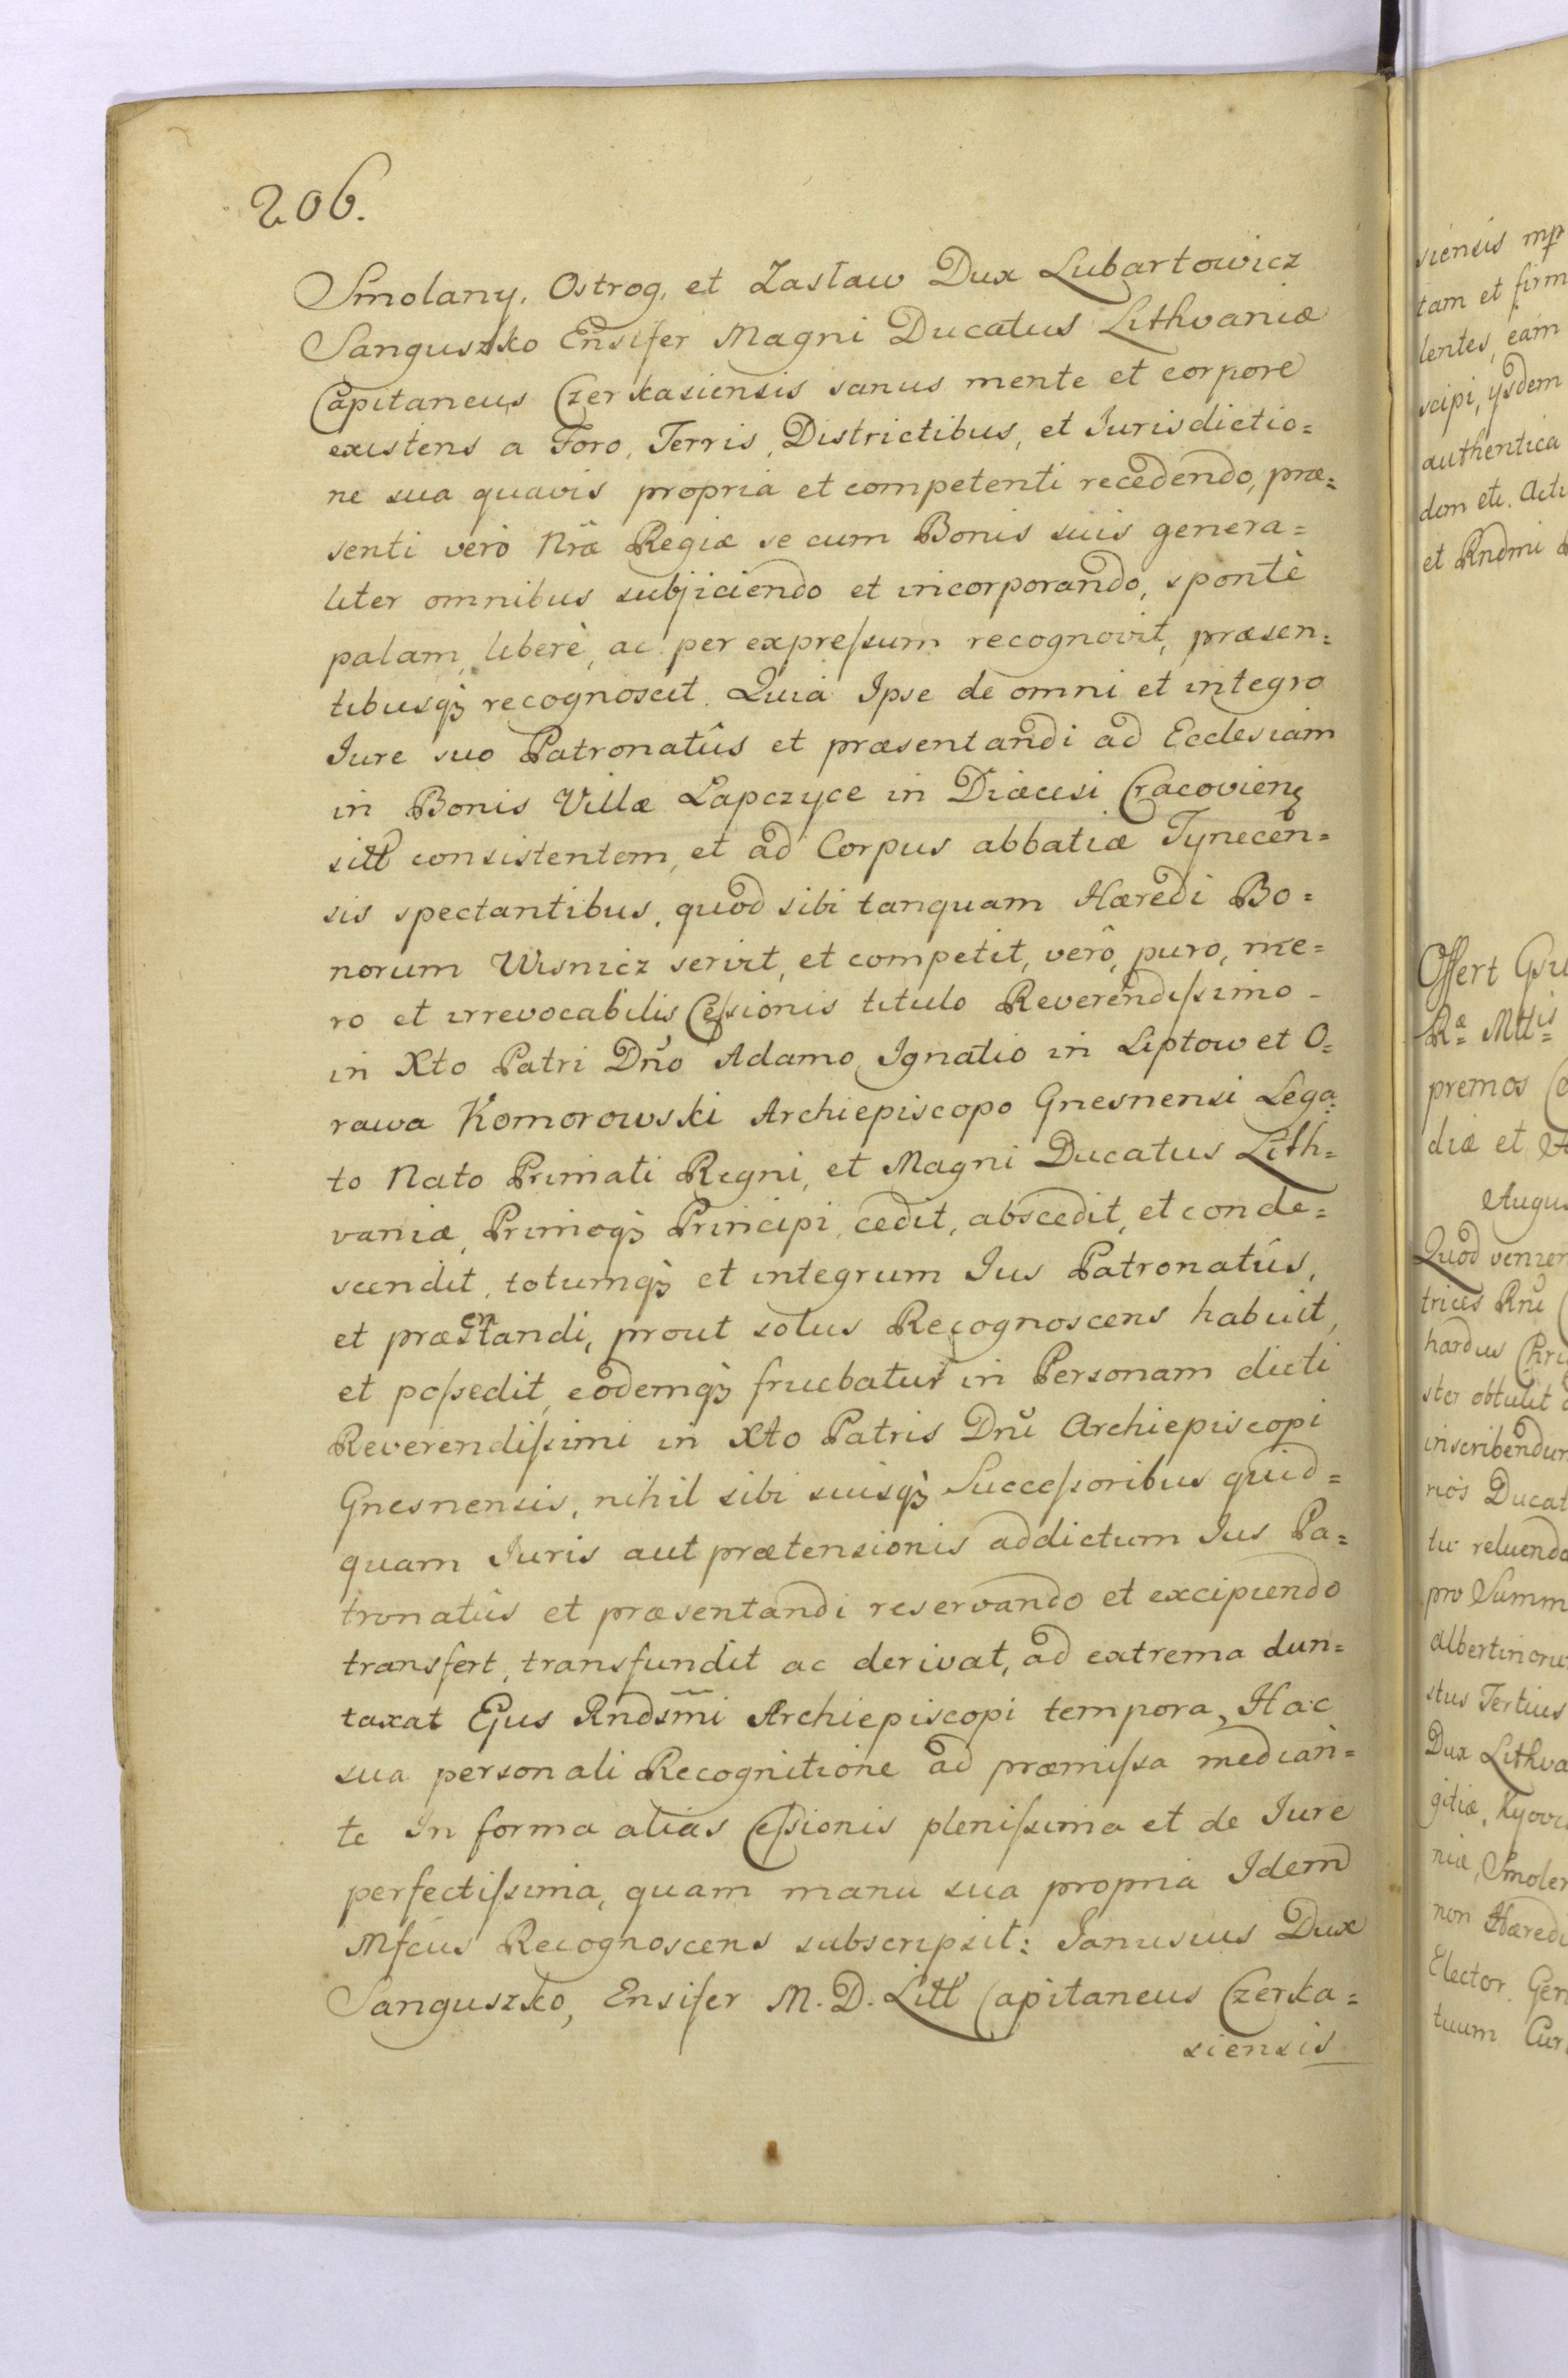 206.
Smolany, Ostrog, et Zasław Dux Lubartowicz
Sanguszko Ensifer Magni Ducatus Lithvaniæ
Capitaneus Czerkasiensis sanus mente et corpore
existens a Foro, Terris, Districtibus, et Jurisdictio=
ne sua quavis propria et competenti recedendo, præ=
senti verò Nrã Regiæ se cum Bonis suis genera=
liter omnibus subjiciendo et incorporando, spontè
palam, liberè, ac per expressum recognovit, præsen=
tibusq; recognoscit. Quia Ipse de omni et integro
Jure suo Patronatûs et præsentandi ad Ecclesiam
in Bonis Villæ Łapczyce in Diæcesi Cracovien;
sitt consistentem, et ad Corpus abbatiæ Tynecen=
sis spectantibus, quod sibi tanquam Hæredi Bo=
norum Wisnicz servit, et competit, verô, puro, me=
ro et irrevocabilis Cessionis titulo Reverendissimo -
in Xto Patri Dno Adamo Ignatio in Liptow et O=
rawa Komorowski Archiepiscopo Gnesnensi Lega=
to Nato Primati Regni, et Magni Ducatus Lith=
vaniæ, Primoq; Principi, cedit, abscedit, et conde=
scendit, totumq; et integrum Jus Patronatûs,
et præsentandi, prout solus Recognoscens habuit,
et possedit, eodemq; fruebatur in Personam dicti
Reverendissimi in Xto Patris Dni Archiepiscopi
Gnesnensis, nihil sibi suisq; Successoribus quid=
quam Juris aut prætensionis addictum Jus Pa=
tronatûs et præsentandi reservando et excipiendo
transfert, transfundit ac derivat, ad extrema dun=
taxat Ejus Rndsmi Archiepiscopi tempora, Hac
sua personali Recognitione ad præmissa median=
te In forma alias Cessionis plenissima et de Jure
perfectissima, quam manu sua propria Idem
Mfcus Recognoscens subscripsit: Janusius Dux
Sanguszko, Ensifer M. D. Litt Capitaneus Czerka=
siensis
siensis mp
tam et firm
lentes, eam
scipi, ysdem
authentica
dam etc. Actu
et Rndmi
Offert
Ra Mttis
premos
diæ et
Augus
Quod venien
trices Rni
hardus Chri
ster obtulit
inscribendum
rios Ducat
tu reluendo
pro Summ
albertinoru
stus Tertius
Dux Lithva
gitiæ, Kyovi
niæ, Smolen
non Hæredi
Elector Ger
tuum Cur